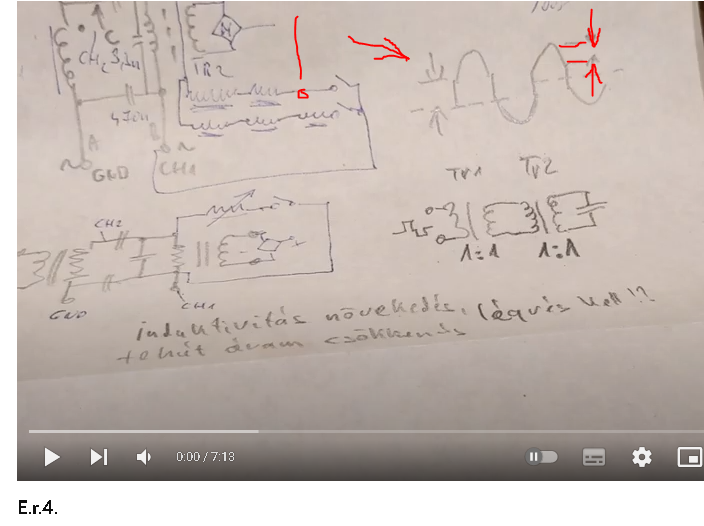 CH2 3,3n
TR2
4,7n
A
GND
CH1
Tr1
Tr2
1:1
1:1
CH2
GND
CH1
induktivitás növekedés, légrés kell !?
tehát áram csökkenés
0:00 / 7:13
E.r.4.